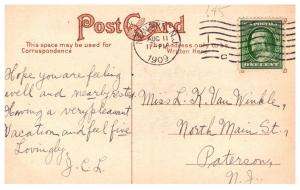 145
Post Card
This space may be used for
Correspondence
The Address only to be
Written Here
AUG 11
12-PM
1909
ONE CENT
Hope you are feeling
well and nearly rested
Having a very pleasant
Vacation and feel fine
Lovingly
J.C.L.
Miss L. K. Van Winkle,
North Main St.,
Paterson,
N.J.